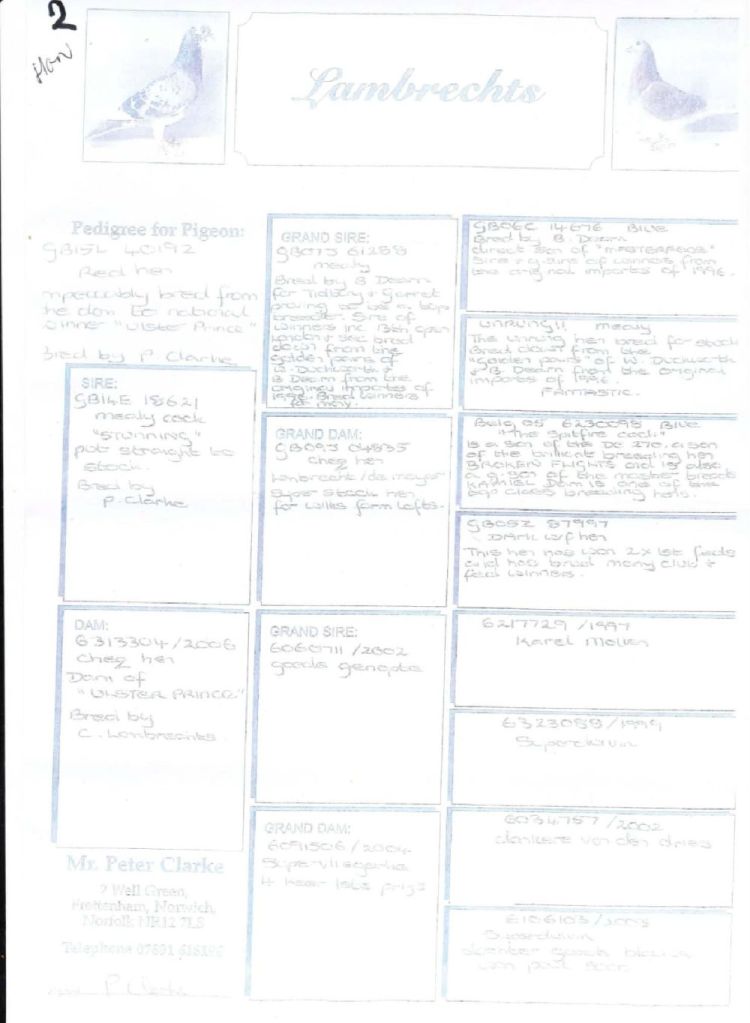 2
Hen
Lambrechts
Pedigree for Pigeon:
GB15L 40192
Red hen
Impeccably bred from
the dam to national
winner "Ulster Prince"
Bred by P Clarke
SIRE:
GB14E 18621
mealy cock
"STUNNING"
put straight to
stock.
Bred by
P. Clarke
DAM:
6313304/2006
cheq hen
Dam of
"ULSTER PRINCE"
Bred by
C. Lambrechts.
Mr. Peter Clarke
2 Well Green,
Frettenham, Norwich,
Norfolk NR12 7LS
Telephone 07891
P Clarke
GRAND SIRE:
GB07J 61288
mealy
Bred by B Dearn
for Tidbury + Garret
proving to be a top
breeder. Sire of
winners inc 13th open
London + sec bred
down from the
golden pairs of
W. Duckworth &
B Dearn from the
original imports of
1996. Bred winners
for many.
GRAND DAM:
GB09J 04835
cheq hen
Lambrechts / de
Super stock hen
for Willis farm lofts.
GRAND SIRE:
6060711/2002
goede
GRAND DAM:
6091506/2004
4 keer 1ste prijs
GB06C 14676 Blue
Bred by B. Dearn
direct son of "MASTERPIECE"
Sire + g.sire of winners from
the original imports of 1996.
UNRUNG!! mealy
The unrung hen bred for stock
Bred down from the
"golden pairs" of W. Duckworth
& B Dearn from the original
imports of 1996.
FANTASTIC.
Belg 05 6230098 Blue
"The Spitfire cock"
is a son of the a son
of the brilliant breeding hen
BROKEN FLIGHTS and is also
a g.son of the master breeder
is one of the
top class breeding hens.
GB05Z 87997
DARK w/f hen
This hen has won 2x 1st feds
and has bred many club +
fed winners.
6217729/1997
Karel
6323088/1999
Superduivin
6034757/2002
donkere van den dries
Superduivin
donker goede
van paul